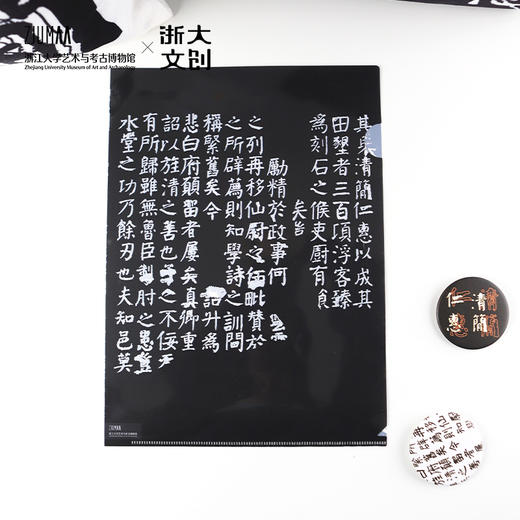 ZJUMAA
浙江大学艺术与考古博物馆
Zhejiang University Museum of Art and Archaeology
×
浙大文创
清簡仁惠以成其
田墾者三百頃浮客臻
為刻石之候吏厨有食
矣昔
勵精於政事何
之列再移仙厨之任毗贊於
之所辟薦則知學詩之訓間
稱緊舊矣今 詔升為
悲白府顛留者屢矣真卿重
詔以旌清之善也之不佞
有所歸雖無魯臣掣肘之患豈
水堂之功乃餘刃也夫知邑莫
ZJUMAA
清簡
仁惠